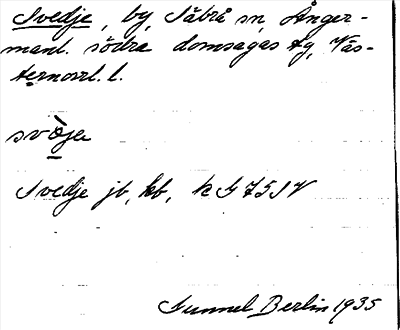 Svedje, by, Säbrå sn, Ånger-
manl. södra domsagas tg, Väs-
ternorrl. l.
svòjea
Svedje jb, kb, k G 75 SV
Gunnel Berlin 1935